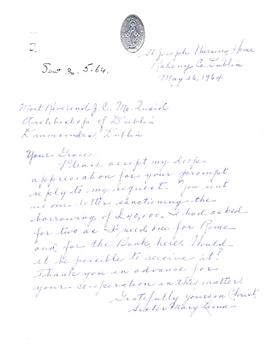 St Joseph Nursing Home
Raheny Co. Dublin
May 26, 1964
5.64.
Most Reverend J. C. Mc.Quaid
Archbishop of Dublin
Drumcondra, Dublin
Your Grace:
Please accept my deep
appreciation for your prompt
reply to my request. You sent
me one letter sanctioning the
borrowing of £40,000. I had asked
for two as I need one for Rome
and, for the Bank, here. Would
it be possible to receive it?
Thank you in advance for
your cooperation in this matter.
Gratefully yours in Christ,
Sister Mary